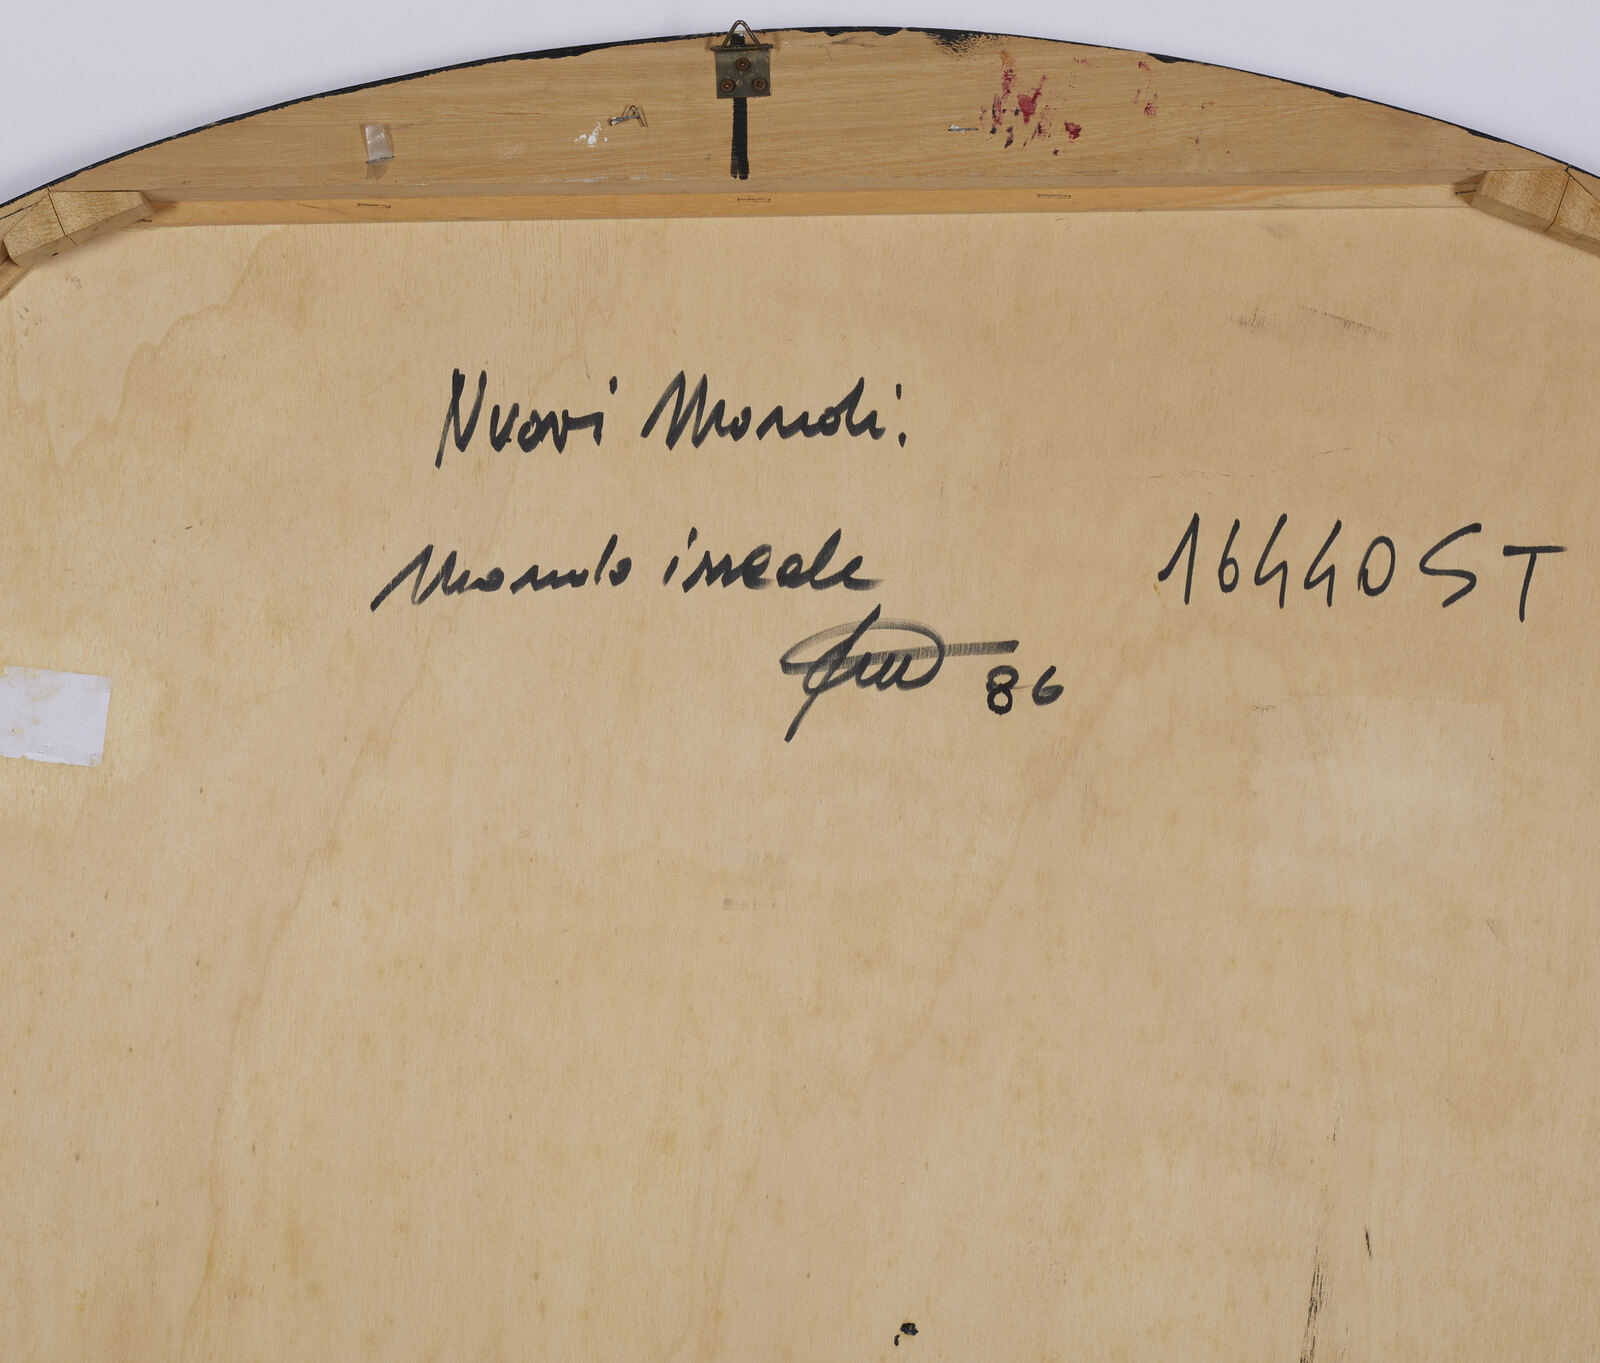 Nuovi Mondi:
Mondo irreale
16440 ST
86